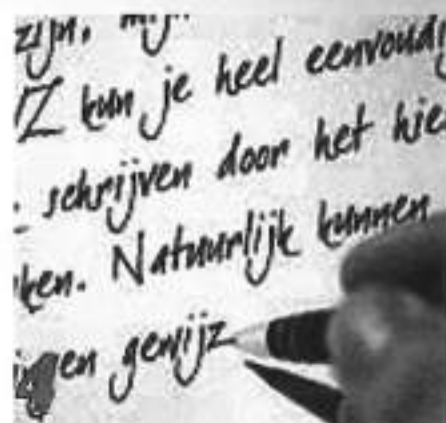 zijn. mijn
kun je heel eenvoudig
schrijven door het hie
ken. Natuurlijk kunnen
en gewijz